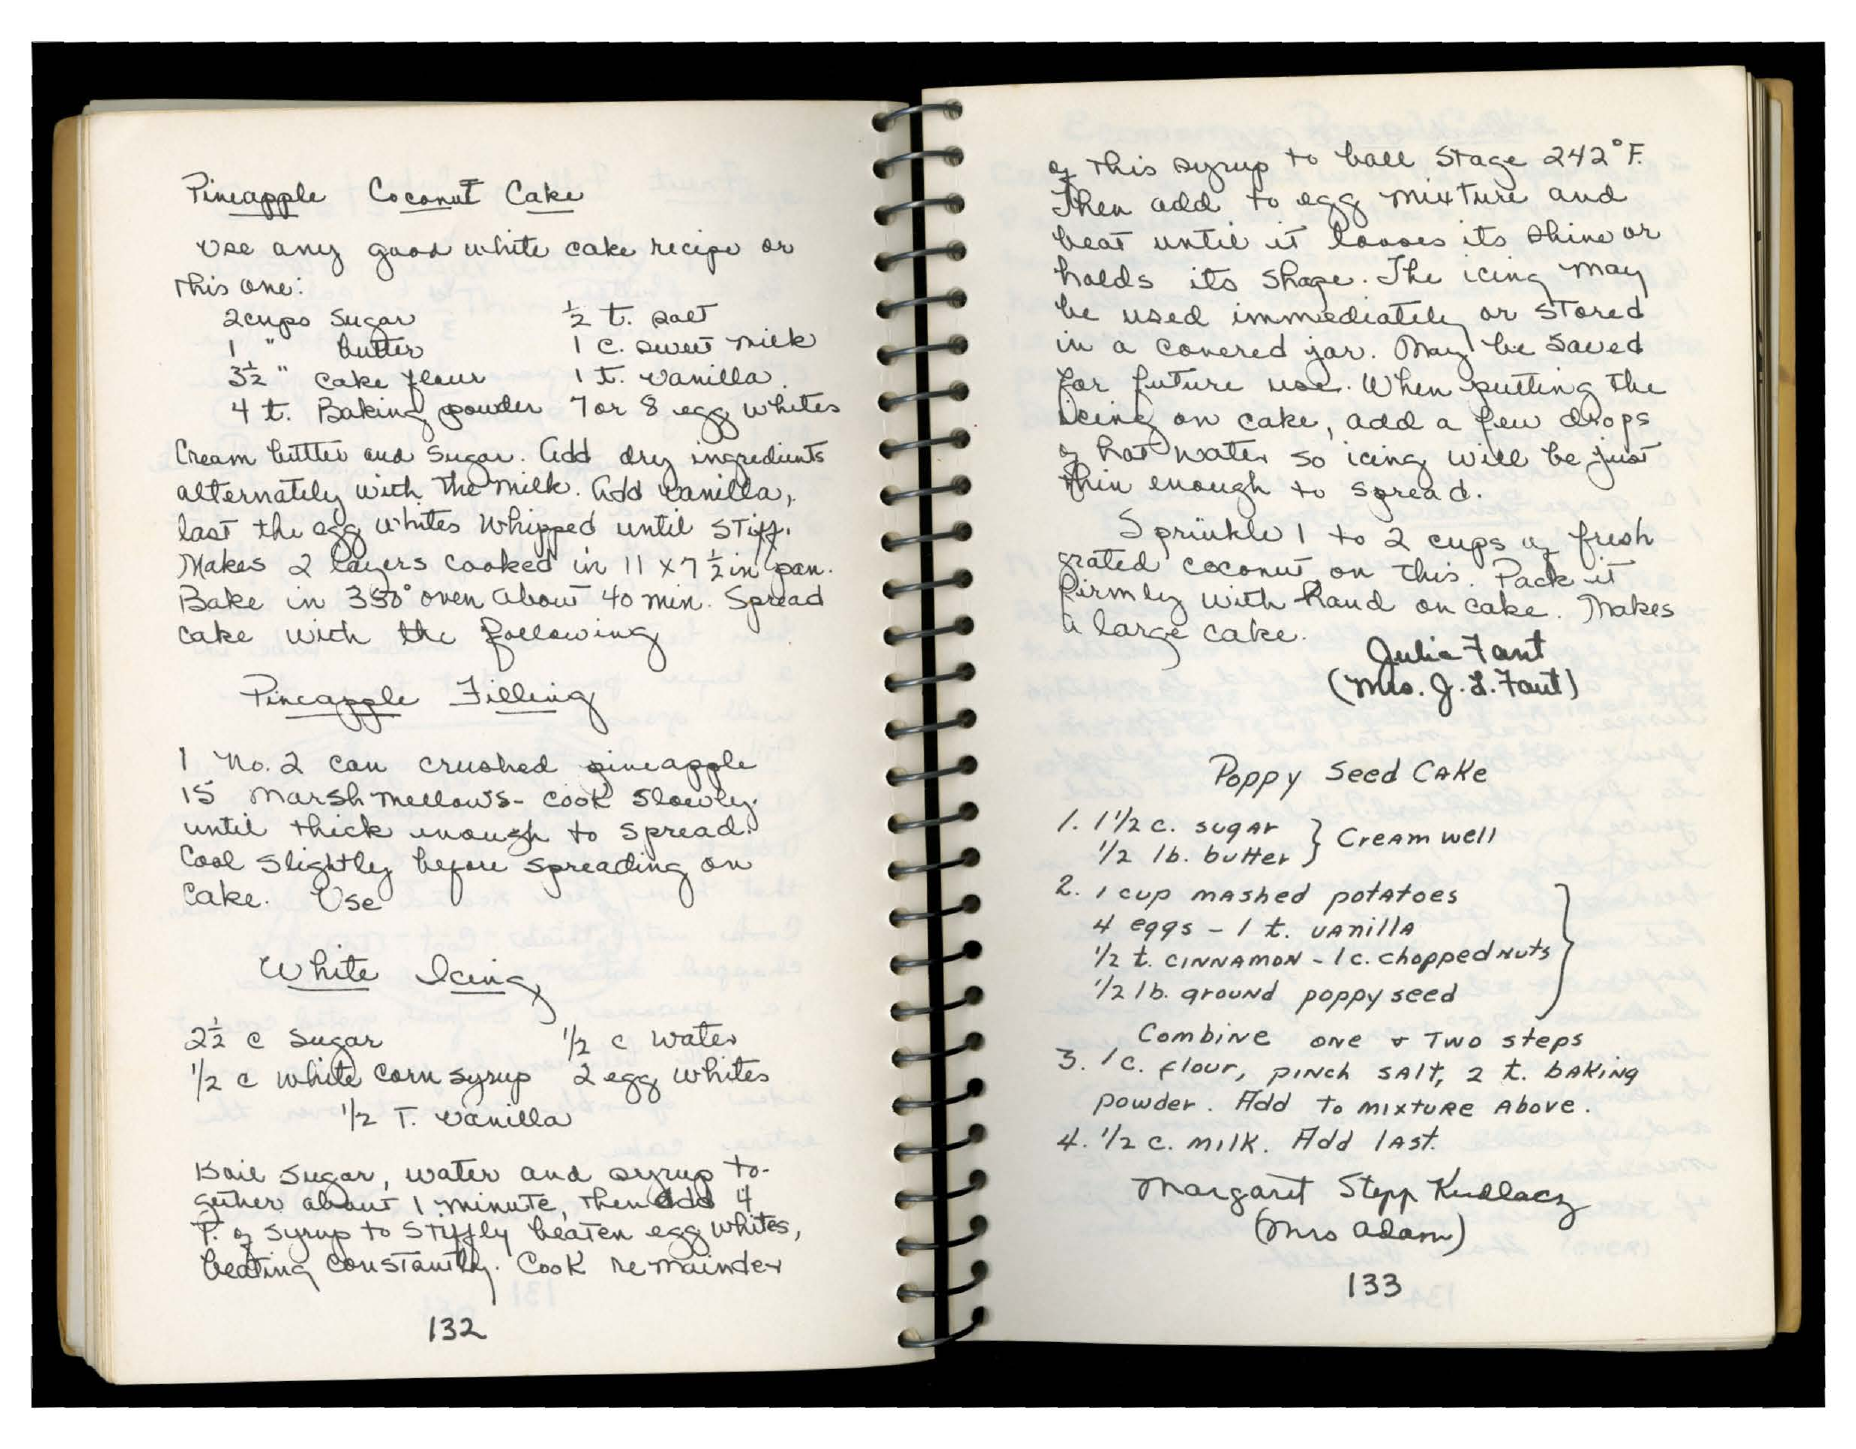 Pineapple Coconut Cake
Use any good white cake recipe or
this one:
2 cups sugar ½ t. salt
1 " butter 1 c. sweet milk
3½ " cake flour 1 t. vanilla.
4 t. Baking powder 7 or 8 egg whites
Cream butter and sugar. Add dry ingredients
alternately with the milk. Add vanilla,
last the egg whites whipped until stiff.
Makes 2 layers cooked in 11 x 7½ in pan.
Bake in 350° oven about 40 min. Spread
cake with the following
Pineapple Filling
1 No. 2 can crushed pineapple
15 Marshmellows - cook slowly
until thick enough to spread.
Cool slightly before spreading on
cake. Use
White Icing
2½ c sugar 1/2 c water
1/2 c white corn syrup 2 egg whites
1/2 T. vanilla
Boil sugar, water and syrup to-
gether about 1 minute, then add 4
T. of syrup to stiffly beaten egg whites,
beating constantly. Cook remainder
132
of this syrup to ball stage 242° F.
Then add to egg mixture and
beat until it looses its shine or
holds its shape. The icing may
be used immediately or stored
in a covered jar. May be saved
for future use. When putting the
icing on cake, add a few drops
of hot water so icing will be just
thin enough to spread.
Sprinkle 1 to 2 cups of fresh
grated coconut on this. Pack it
firmly with hand on cake. Makes
a large cake.
Julia Fant
(Mrs. J. L. Fant)
Poppy Seed Cake
1. 1 1/2 c. sugar } Cream well
1/2 lb. butter
2. 1 cup mashed potatoes
4 eggs - 1 t. vanilla
1/2 t. cinnamon - 1 c. chopped nuts
1/2 lb. ground poppy seed
Combine one & two steps
3. 1 c. flour, pinch salt, 2 t. baking
powder. Add to mixture above.
4. 1/2 c. milk. Add last.
Margaret Stepp Kudlacz
(Mrs Adam)
133